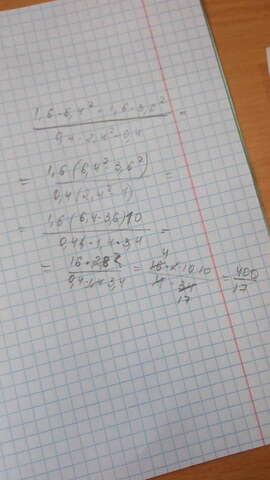 1,6·6,4² - 1,6·3,6²
0,4·2,4² - 0,4
=
= 1,6·(6,4²-3,6²)
0,4(2,4²-1)
=
= 1,6·(6,4-3,6)10
0,4·1,4·3,4
=
= 16·2,8
0,4·1,4·3,4
= 16·10·10
4
34
17
= 400
17